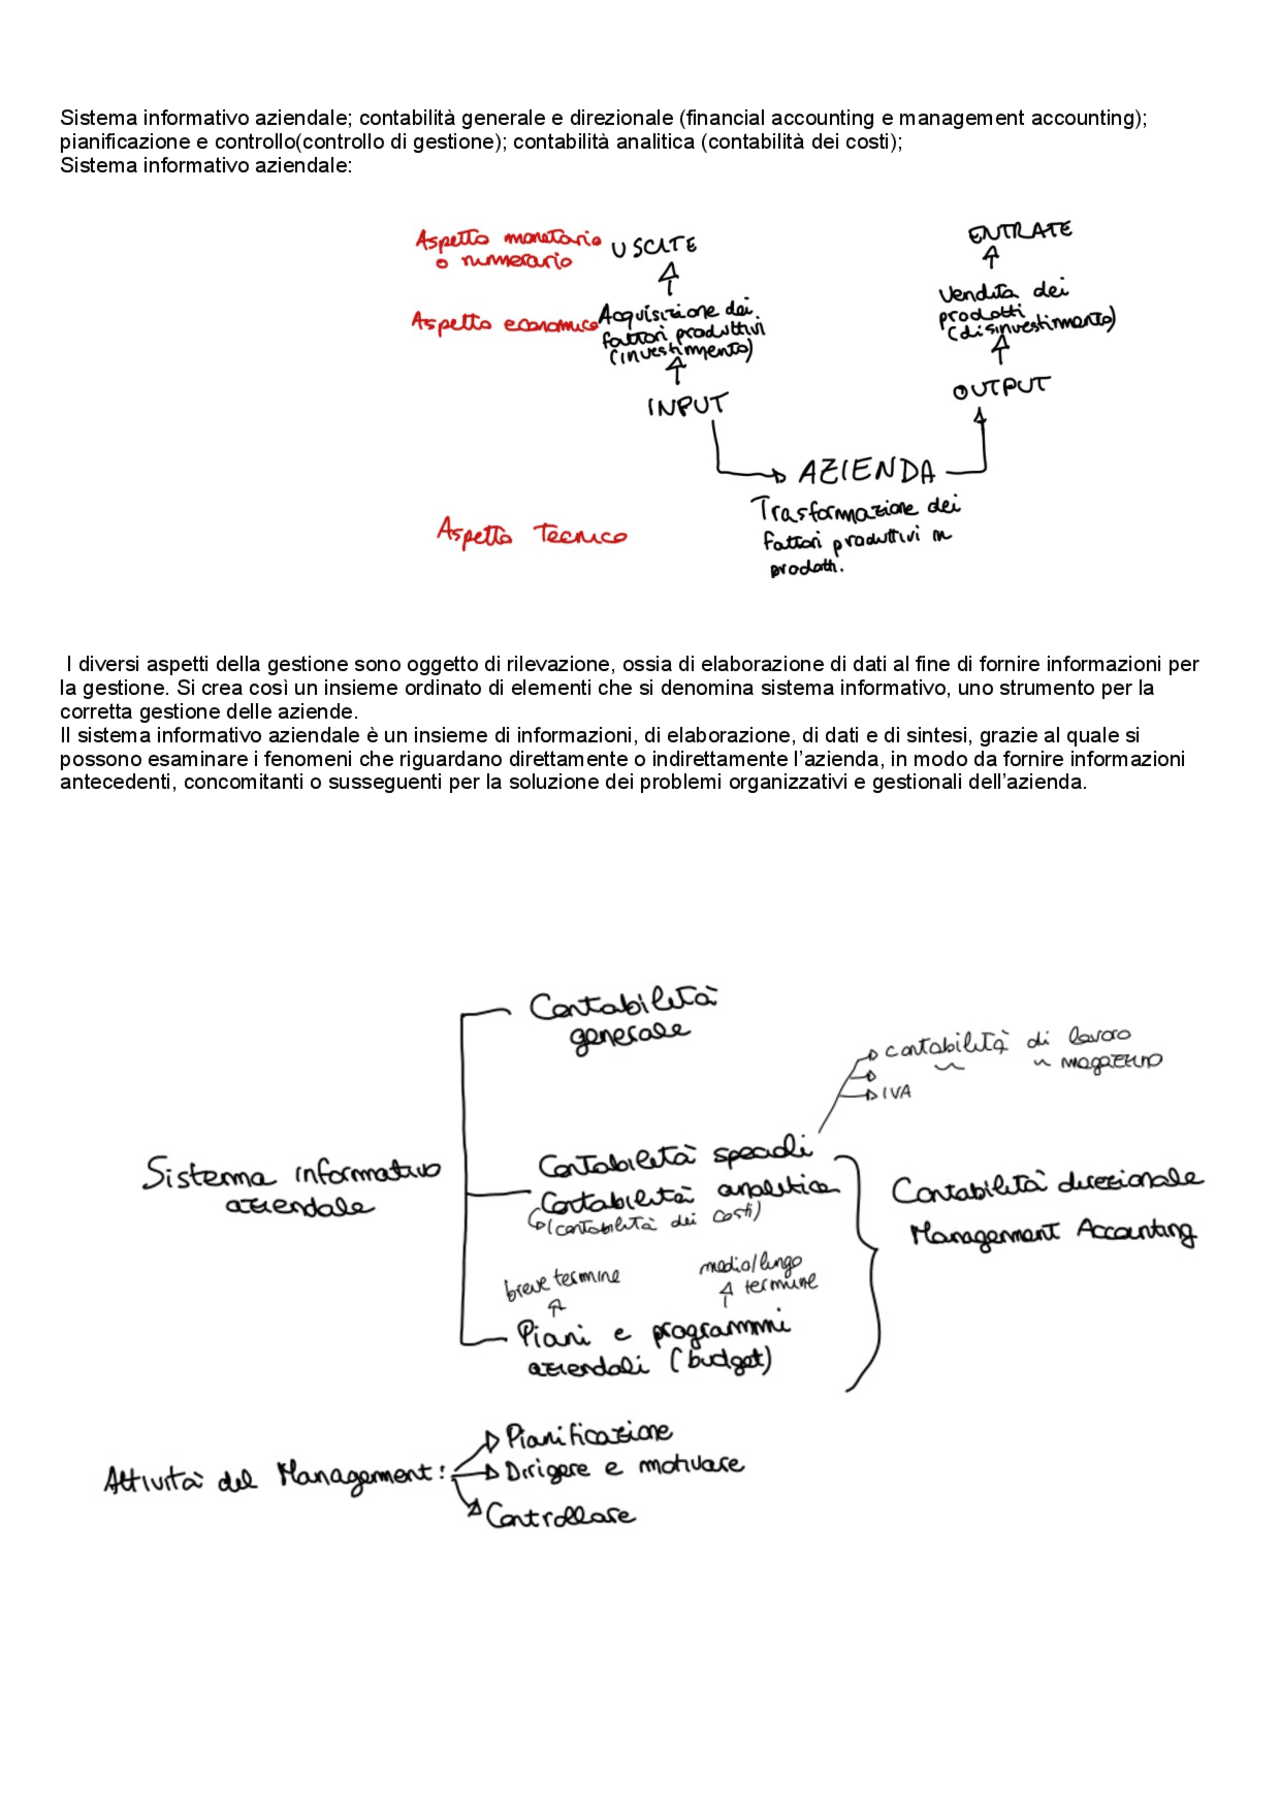 Sistema informativo aziendale; contabilità generale e direzionale (financial accounting e management accounting);
pianificazione e controllo(controllo di gestione); contabilità analitica (contabilità dei costi);
Sistema informativo aziendale:
Aspetto monetario
o numerario
USCITE
ENTRATE
Aspetto economico
Acquisizione dei
fattori produttivi
(investimento)
Vendita dei
prodotti
(disinvestimento)
INPUT
OUTPUT
AZIENDA
Aspetto Tecnico
Trasformazione dei
fattori produttivi in
prodotti.
I diversi aspetti della gestione sono oggetto di rilevazione, ossia di elaborazione di dati al fine di fornire informazioni per
la gestione. Si crea così un insieme ordinato di elementi che si denomina sistema informativo, uno strumento per la
corretta gestione delle aziende.
Il sistema informativo aziendale è un insieme di informazioni, di elaborazione, di dati e di sintesi, grazie al quale si
possono esaminare i fenomeni che riguardano direttamente o indirettamente l'azienda, in modo da fornire informazioni
antecedenti, concomitanti o susseguenti per la soluzione dei problemi organizzativi e gestionali dell'azienda.
Contabilità
generale
contabilità di lavoro
magazzino
IVA
Sistema informativo
aziendale
Contabilità speciali
Contabilità analitica
(contabilità dei costi)
Contabilità direzionale
Management Accounting
breve termine
medio/lungo
termine
Piani e programmi
aziendali (budget)
Attività del Management:
Pianificazione
Dirigere e motivare
Controllare